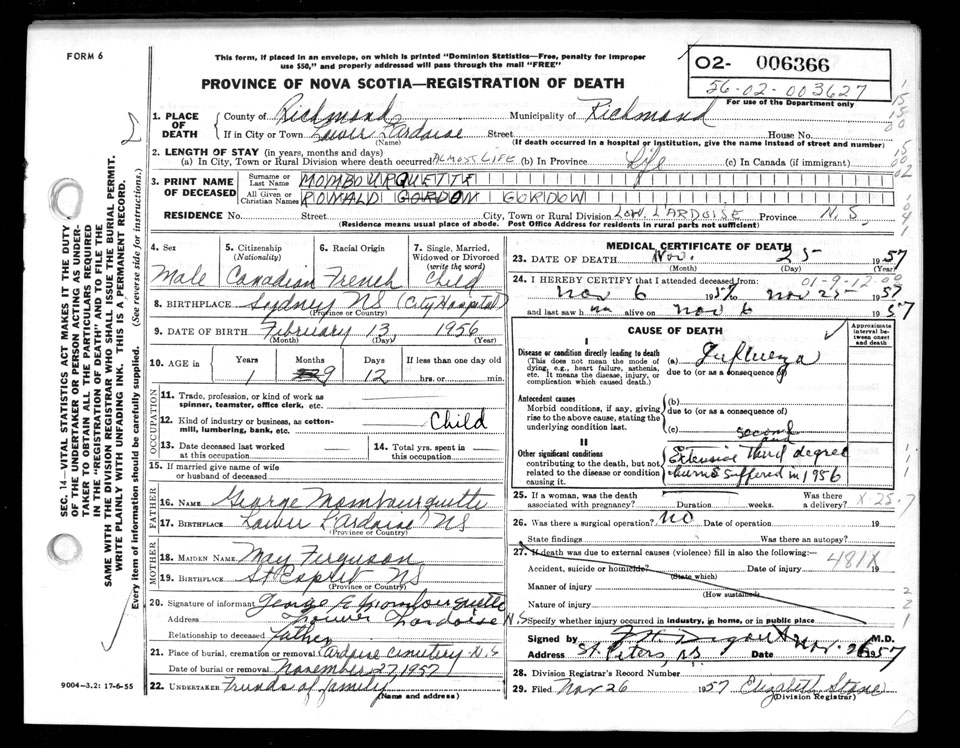 FORM 6
This form, if placed in an envelope, on which is printed "Dominion Statistics—Free, penalty for improper
use $50," and properly addressed will pass through the mail "FREE"
PROVINCE OF NOVA SCOTIA—REGISTRATION OF DEATH
02- 006366
56-02-003627
For use of the Department only
1. PLACE OF DEATH
County of Richmond Municipality of Richmond
If in City or Town Lower L'Ardoise Street House No.
(Name) (If death occurred in a hospital or institution, give name instead of street and number)
2. LENGTH OF STAY (in years, months and days)
(a) In City, Town or Rural Division where death occurred ALMOST LIFE (b) In Province Life (c) In Canada (if immigrant)
3. PRINT NAME OF DECEASED
Surname or Last Name MOMBOURQUETTE
All Given or Christian Names RONALD GORDON GORDON
RESIDENCE No. Street City, Town or Rural Division LOW. L'ARDOISE Province N.S
(Residence means usual place of abode. Post Office Address for residents in rural parts not sufficient)
4. Sex Male
5. Citizenship (Nationality) Canadian
6. Racial Origin French
7. Single, Married, Widowed or Divorced (write the word) Child
8. BIRTHPLACE Sydney NS (City Hospital)
(Province or Country)
9. DATE OF BIRTH February 13, 1956
(Month) (Day) (Year)
10. AGE in Years Months Days If less than one day old
1 9 12 hrs. or min.
OCCUPATION
11. Trade, profession, or kind of work as spinner, teamster, office clerk, etc.
12. Kind of industry or business, as cotton-mill, lumbering, bank, etc. Child
13. Date deceased last worked at this occupation
14. Total yrs. spent in this occupation
15. If married give name of wife or husband of deceased
FATHER
16. NAME George Mombourquette
17. BIRTHPLACE Lower L'Ardoise NS
(Province or Country)
MOTHER
18. MAIDEN NAME May Ferguson
19. BIRTHPLACE St Esprit NS
(Province or Country)
20. Signature of informant George E Mombourquette
Address Lower Lardoise N.S
Relationship to deceased Father
21. Place of burial, cremation or removal Lardoise Cemetery N.S
Date of burial or removal November 27, 1957
22. UNDERTAKER Friends of family
(Name and address)
9004—3.2: 17-6-55
MEDICAL CERTIFICATE OF DEATH
23. DATE OF DEATH Nov. 25 1957
(Month) (Day) (Year)
24. I HEREBY CERTIFY that I attended deceased from:
01-9-12-00
Nov 6 1957 to Nov 25 1957
and last saw him alive on Nov 6 1957
CAUSE OF DEATH
Approximate interval between onset and death
I
Disease or condition directly leading to death
(This does not mean the mode of dying, e.g., heart failure, asthenia, etc. It means the disease, injury, or complication which caused death.)
(a) Influenza
due to (or as a consequence of)
Antecedent causes
Morbid conditions, if any, giving rise to the above cause, stating the underlying condition last.
(b)
due to (or as a consequence of)
(c)
II
Other significant conditions
contributing to the death, but not related to the disease or condition causing it.
second and
Extensive third degree
burns suffered in 1956
25. If a woman, was the death associated with pregnancy? Duration weeks. Was there a delivery?
X-25.7
26. Was there a surgical operation? NO Date of operation 19
State findings Was there an autopsy?
27. If death was due to external causes (violence) fill in also the following:—
481X
Accident, suicide or homicide? Date of injury 19
(State which)
Manner of injury
(How sustained)
Nature of injury
Specify whether injury occurred in industry, in home, or in public place
Signed by M.D.
Address St. Peters, N.S. Date Nov. 26 1957
28. Division Registrar's Record Number
29. Filed Nov 26 1957 Elizabeth Stone
(Division Registrar)
SEC. 14—VITAL STATISTICS ACT MAKES IT THE DUTY
OF THE UNDERTAKER OR PERSON ACTING AS UNDER-
TAKER TO OBTAIN ALL THE PARTICULARS REQUIRED
IN THE "REGISTRATION OF DEATH" AND TO FILE THE
SAME WITH THE DIVISION REGISTRAR WHO SHALL ISSUE THE BURIAL PERMIT.
WRITE PLAINLY WITH UNFADING INK. THIS IS A PERMANENT RECORD.
Every item of information should be carefully supplied. (See reverse side for instructions.)